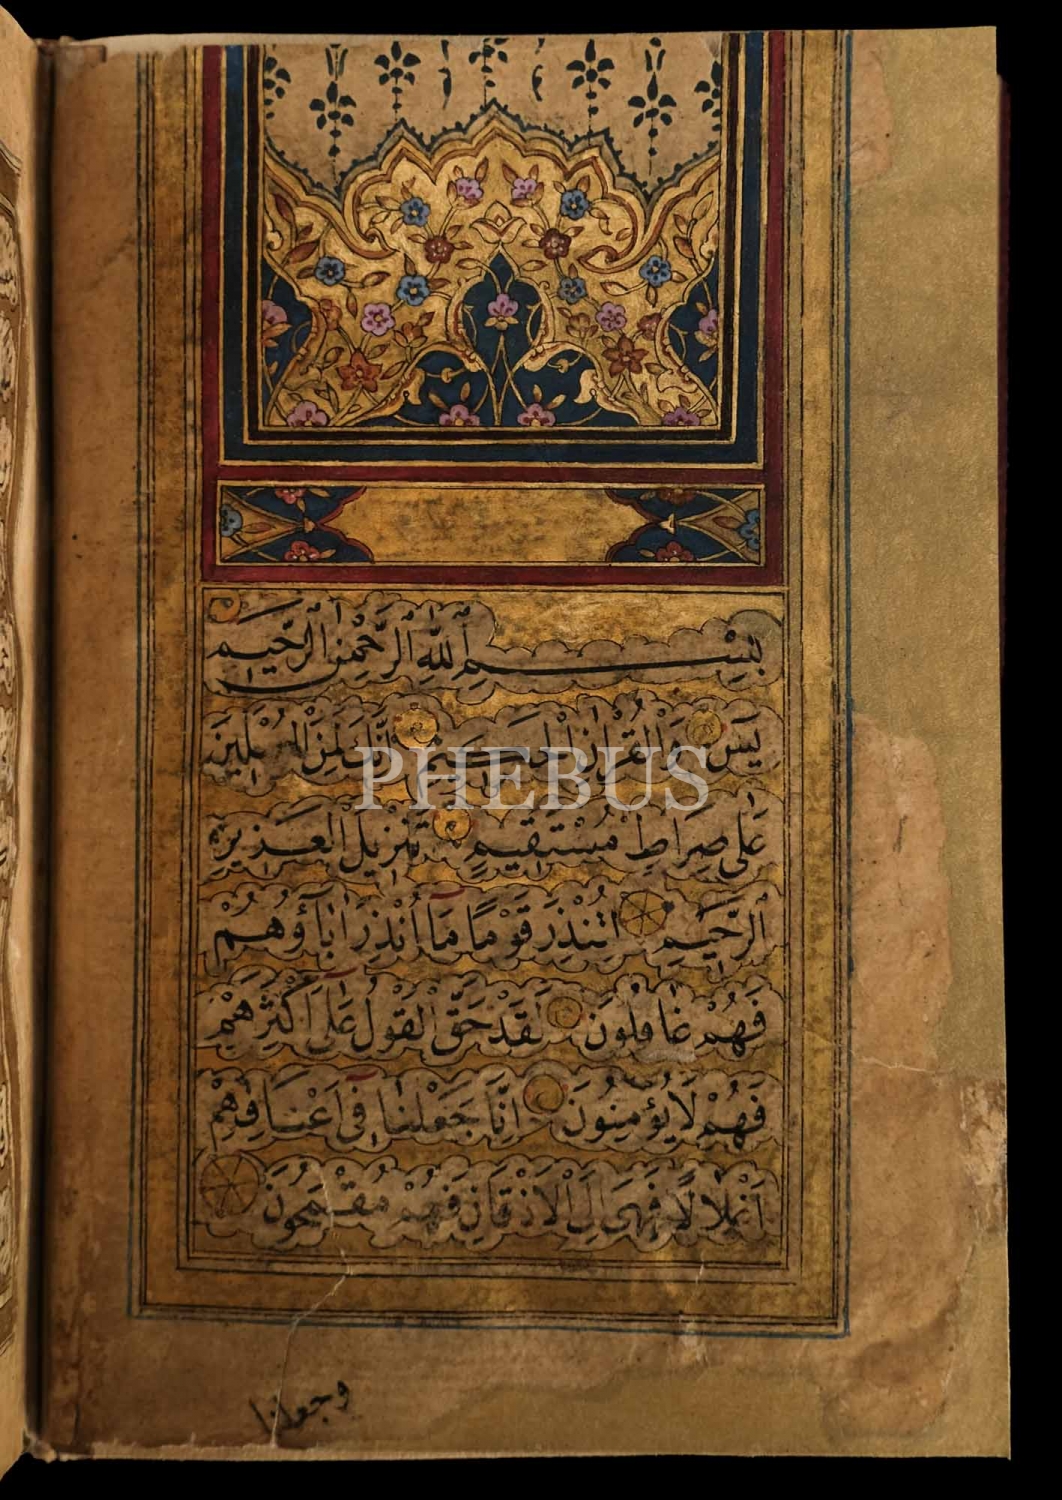 بِسْمِ ٱللّٰهِ ٱلرَّحْمٰنِ ٱلرَّحِيمِ
يٰسٓ وَالْقُرْاٰنِ الْحَكِيمِ اِنَّكَ لَمِنَ الْمُرْسَلِينَ
PHEBUS
عَلٰى صِرَاطٍ مُسْتَقِيمٍ تَنْزِيلَ الْعَزِيزِ
ٱلرَّحِيمِ لِتُنْذِرَ قَوْمًا مَٓا اُنْذِرَ اٰبَٓاؤُهُمْ
فَهُمْ غَافِلُونَ لَقَدْ حَقَّ الْقَوْلُ عَلٰٓى اَكْثَرِهِمْ
فَهُمْ لَا يُؤْمِنُونَ اِنَّا جَعَلْنَا فٓى اَعْنَاقِهِمْ
اَغْلَالًا فَهِىَ اِلَى الْاَذْقَانِ فَهُمْ مُقْمَحُونَ
وجعلنا